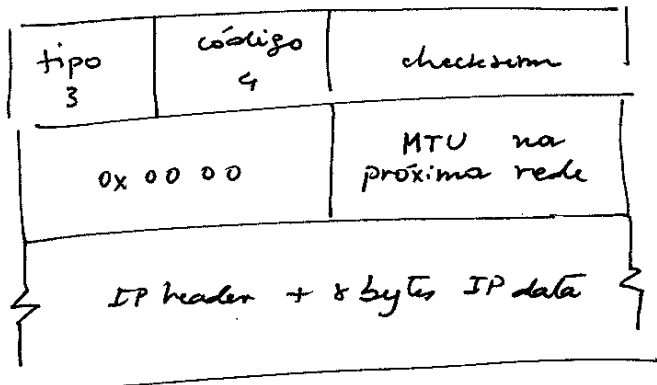 tipo
3
código
4
checksum
0x 00 00
MTU na
próxima rede
IP header + 8 bytes IP data